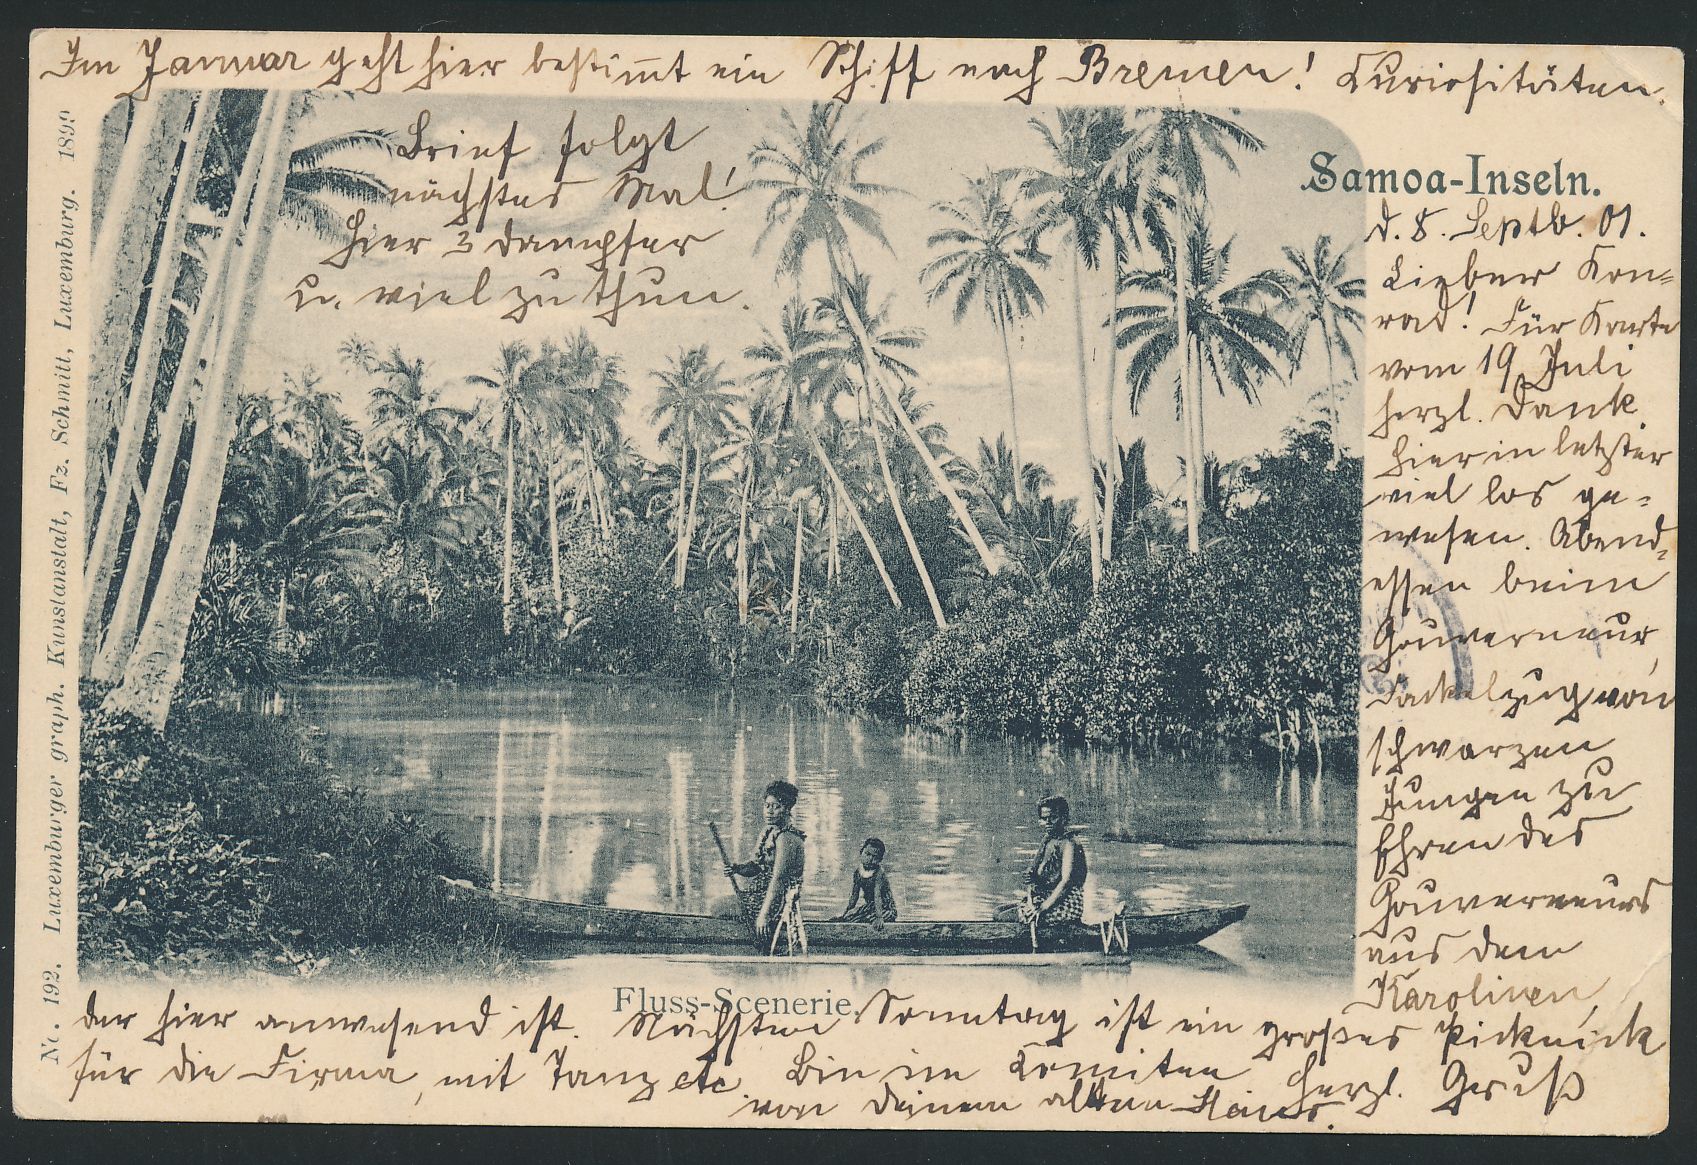 Im Januar geht hier bestimmt ein Schiff nach Bremen! Curiositäten.
Brief folgt
nächstes Mal!
Hier 3 Dampfer
u. viel zu thun.
Samoa-Inseln.
d. 8. Septb. 01.
Lieber Kon-
rad! Für Karte
vom 19 Juli
herzl. Dank.
Hier in letzter
viel los ge-
wesen. Abend-
essen beim
Gouverneur,
Fackelzug von
schwarzen
Jungen zu
Ehren des
Gouverneurs
aus den
Karolinen,
der hier anwesend ist. Nächsten Sonntag ist ein großes Picknick
für die Firma, mit Tanz etc. Bin im Comitee Herzl. Gruß
von Deinem alten Hans.
Fluss-Scenerie.
No. 192. Luxemburger graph. Kunstanstalt, Fz. Schmitt, Luxemburg. 1899